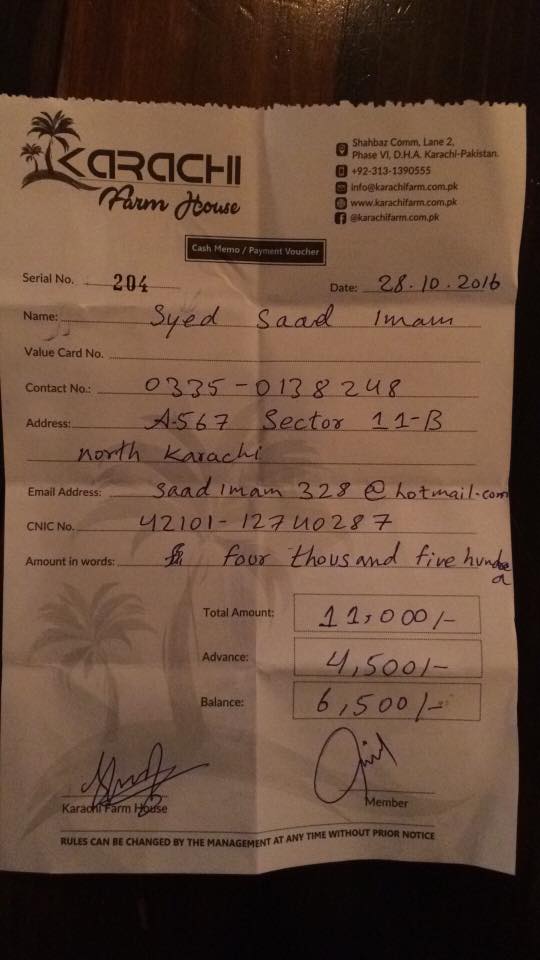 KARACHI
Farm House
Shahbaz Comm, Lane 2,
Phase VI, D.H.A. Karachi-Pakistan.
+92-313-1390555
info@karachifarm.com.pk
www.karachifarm.com.pk
@karachifarm.com.pk
Cash Memo / Payment Voucher
Serial No. 204
Date: 28.10.2016
Name: Syed Saad Imam
Value Card No.
Contact No.: 0335-0138248
Address: A-567 Sector 11-B
north Karachi
Email Address: saadimam328@hotmail.com
CNIC No. 42101-12740287
Amount in words: four thousand five hundred
Total Amount: 11,000/-
Advance: 4,500/-
Balance: 6,500/-
Karachi Farm House
Member
RULES CAN BE CHANGED BY THE MANAGEMENT AT ANY TIME WITHOUT PRIOR NOTICE